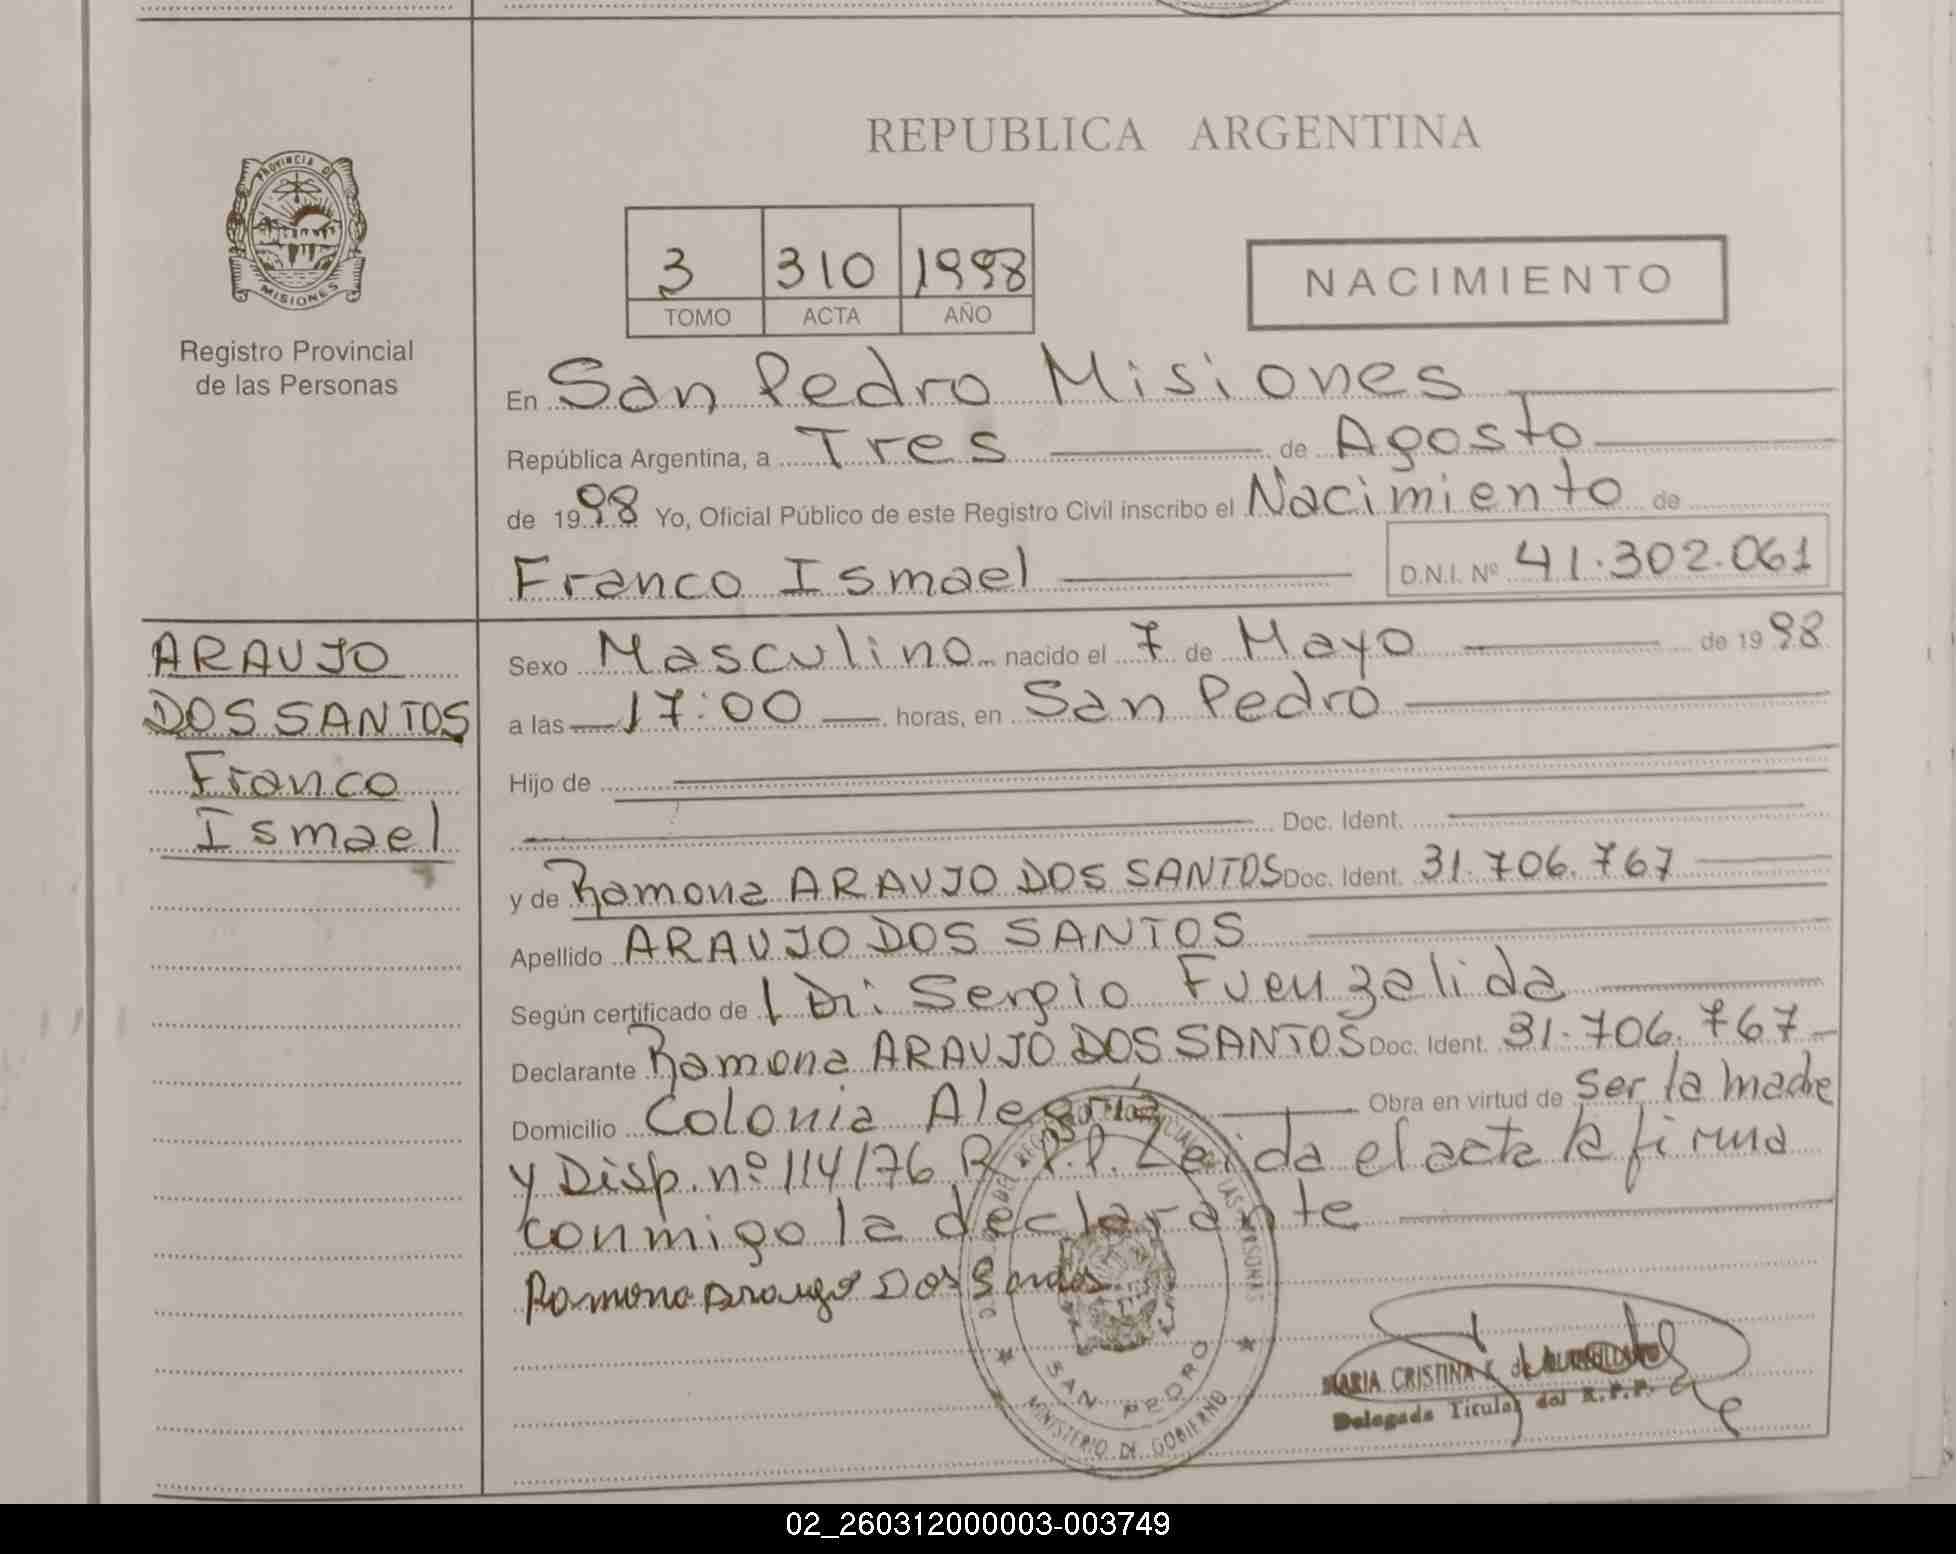 REPUBLICA ARGENTINA
PROVINCIA DE
MISIONES
Registro Provincial
de las Personas
3 310 1998
TOMO ACTA AÑO
NACIMIENTO
En San Pedro Misiones
República Argentina, a Tres de Agosto
de 1998 Yo, Oficial Público de este Registro Civil inscribo el Nacimiento de
Franco Ismael D.N.I. Nº 41.302.061
ARAUJO
DOS SANTOS
Franco
Ismael
Sexo Masculino nacido el 7 de Mayo de 1998
a las 17:00 horas, en San Pedro
Hijo de
Doc. Ident.
y de Ramona ARAUJO DOS SANTOS Doc. Ident. 31.706.767
Apellido ARAUJO DOS SANTOS
Según certificado de Dr: Sergio Fuenzalida
Declarante Ramona ARAUJO DOS SANTOS Doc. Ident. 31.706.767
Domicilio Colonia Alegría Obra en virtud de ser la madre
y Disp. nº 114/76 R.P.P. Leida el acta la firma
conmigo la declarante
Ramona Araujo Dos Santos
SAN PEDRO
MINISTERIO DE GOBIERNO
MARIA CRISTINA
Delegada Titular del R.P.P.
02_260312000003-003749